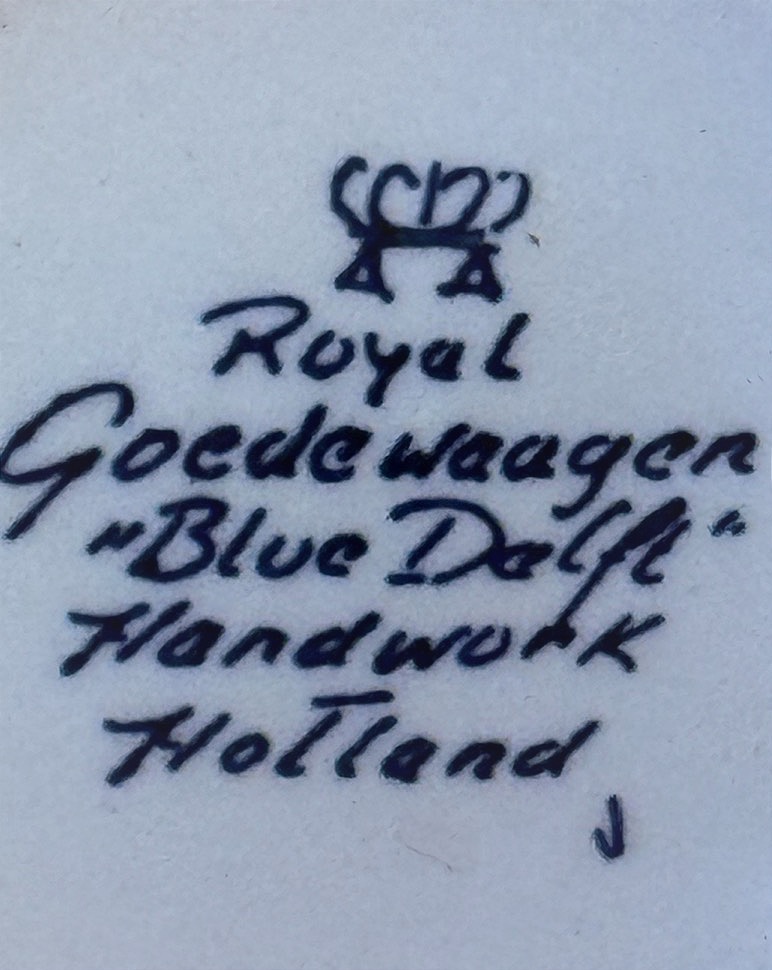 Royal
Goedewaagen
"Blue Delft"
Handwork
Holland
J